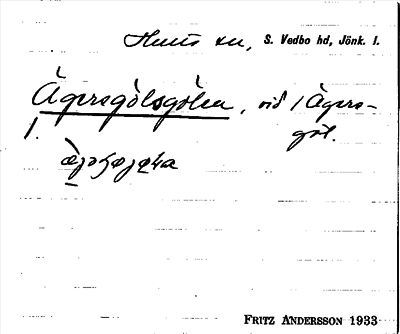 Hults sn, S. Vedbo hd, Jönk. l.
Ägersgölsgölen, vid 1 Ägers-
göl.
1.
FRITZ ANDERSSON 1933